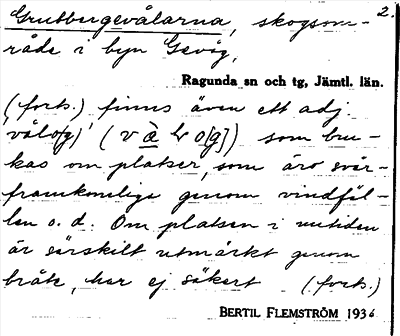 2.
Grubbergevålarna, skogsom-
råde i byn Gevåg,
Ragunda sn och tg, Jämtl. län.
(forts.) finns även ett adj.
'vålo(g)' (våḷo[g]) som bru-
kas om platser, som äro svår-
framkomliga genom vindfäl-
len o. d. Om platsen i nutiden
är särskilt utmärkt genom
bråte, har ej säkert (forts.)
BERTIL FLEMSTRÖM 1936